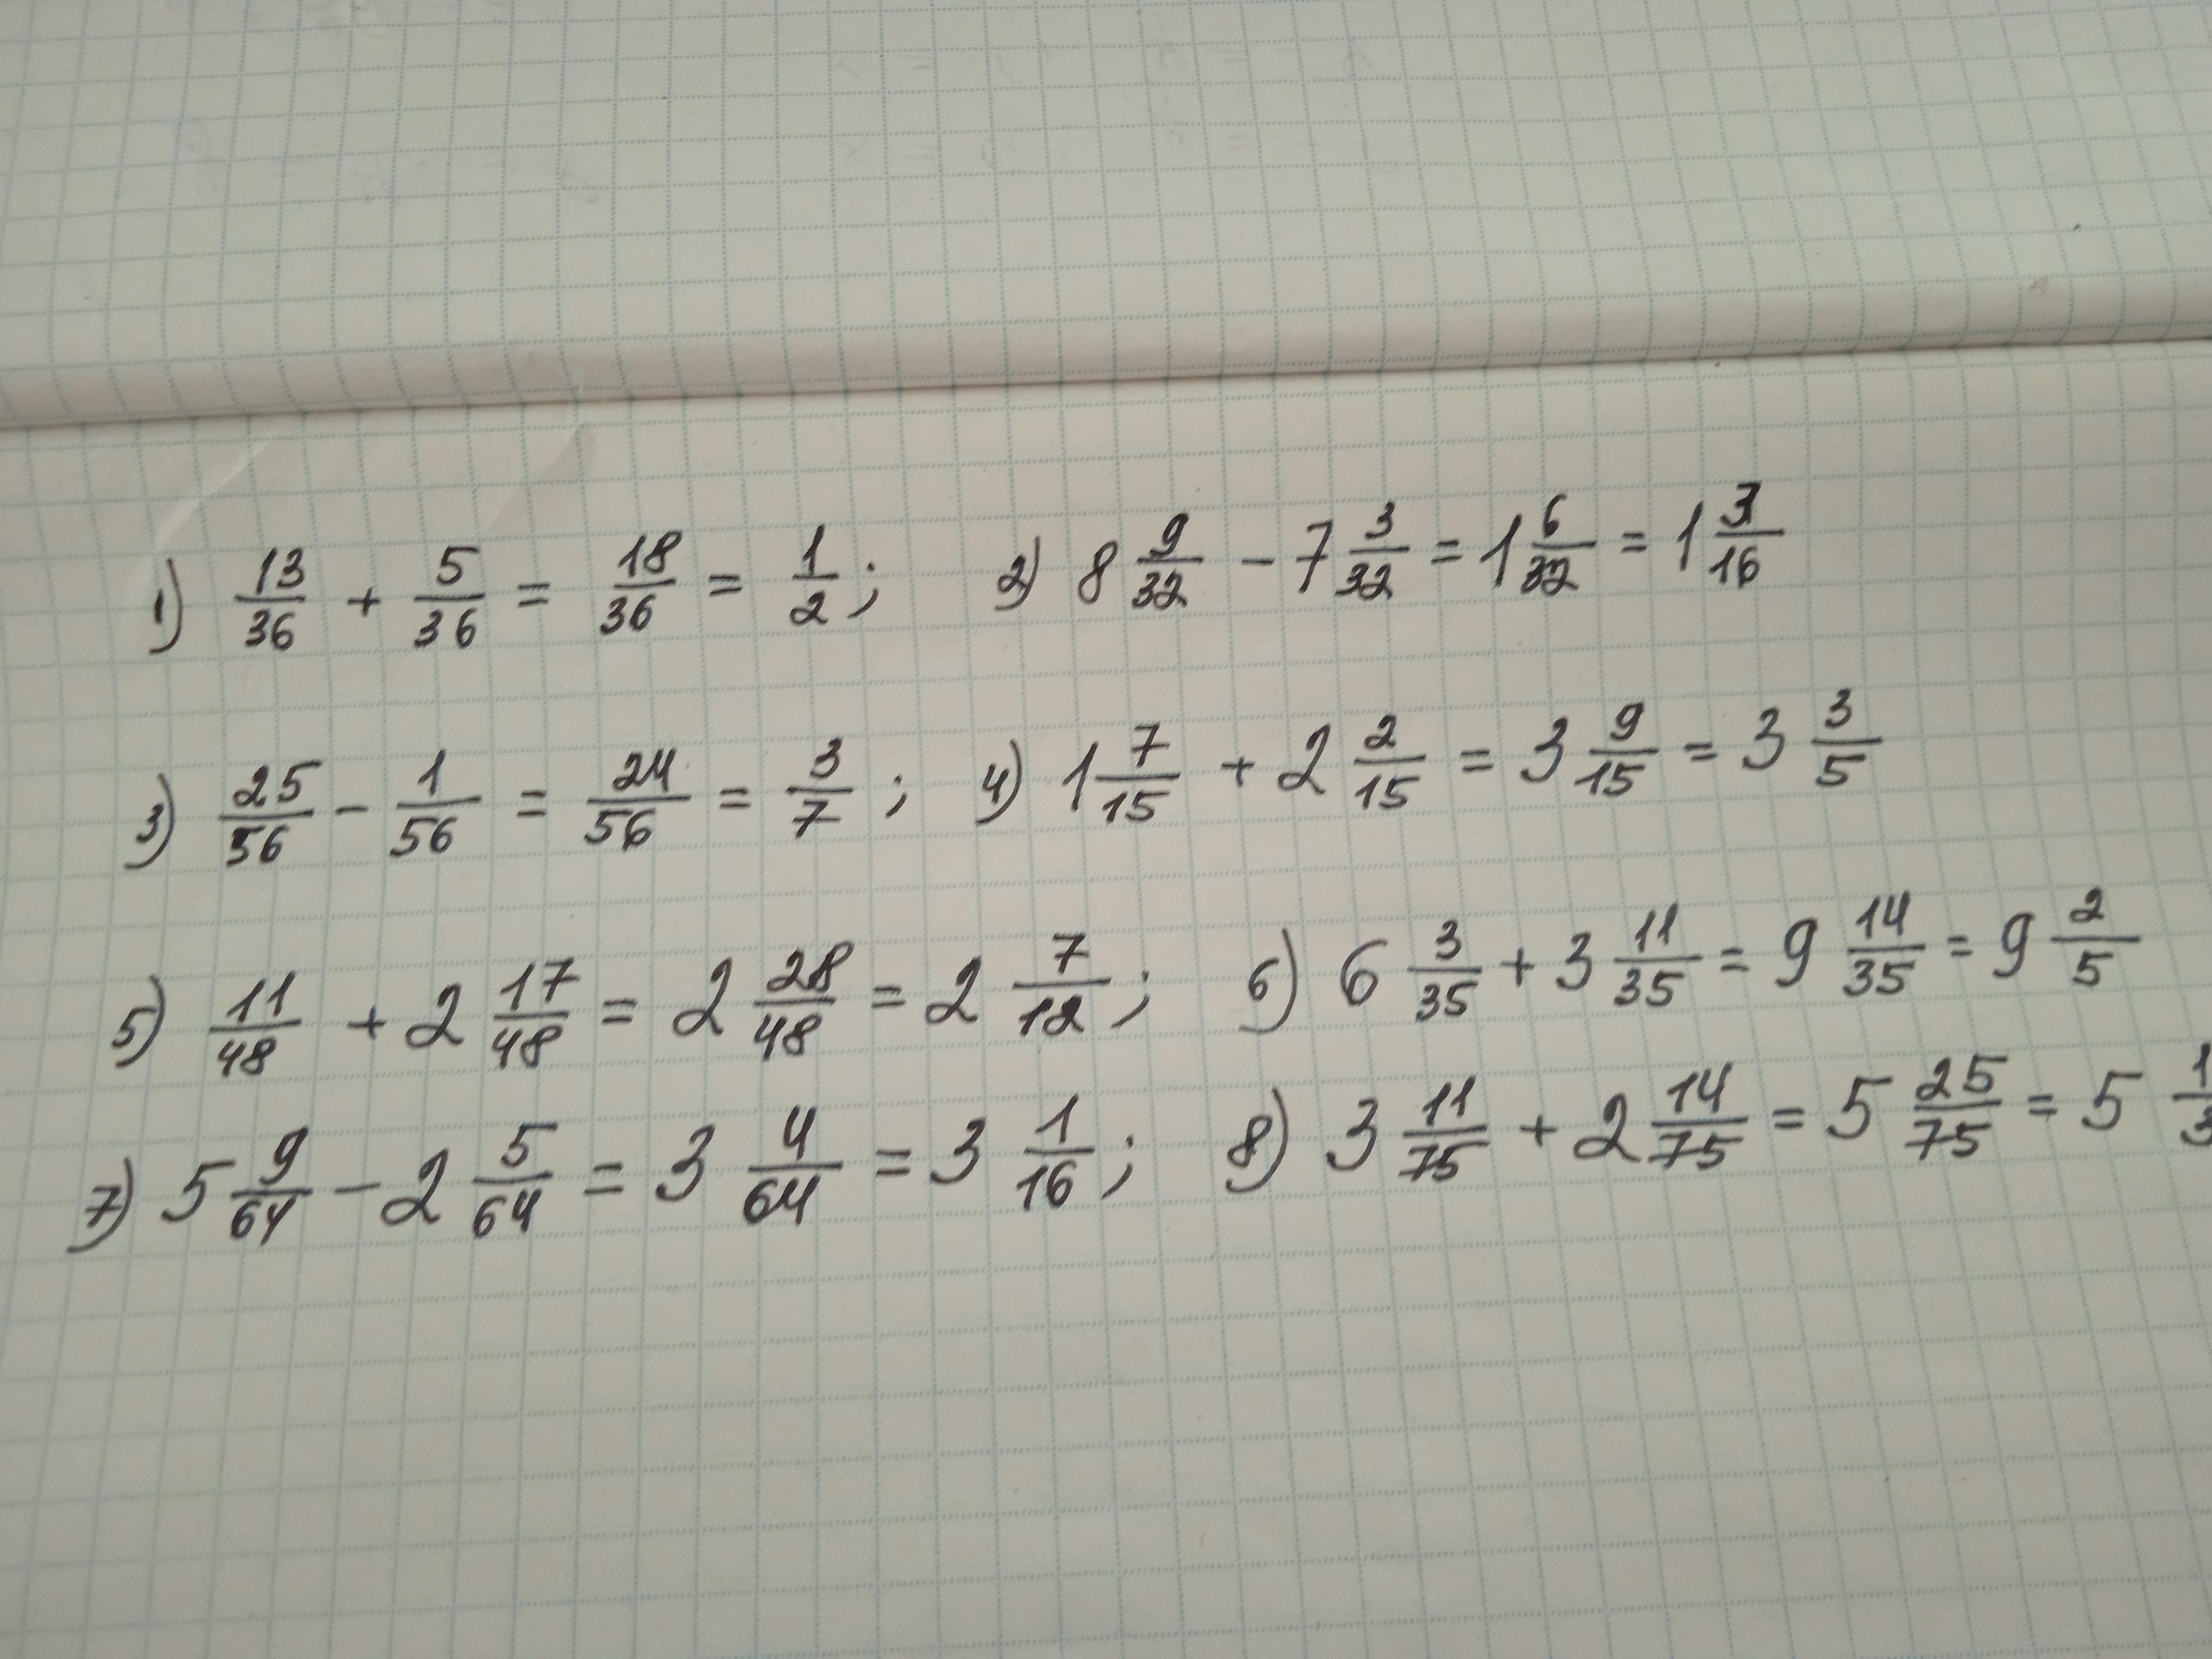 1) 13/36 + 5/36 = 18/36 = 1/2; 2) 8 9/32 - 7 3/32 = 1 6/32 = 1 3/16
3) 25/56 - 1/56 = 24/56 = 3/7; 4) 1 7/15 + 2 2/15 = 3 9/15 = 3 3/5
5) 11/48 + 2 17/48 = 2 28/48 = 2 7/12; 6) 6 3/35 + 3 11/35 = 9 14/35 = 9 2/5
7) 5 9/64 - 2 5/64 = 3 4/64 = 3 1/16; 8) 3 11/75 + 2 14/75 = 5 25/75 = 5 1/3